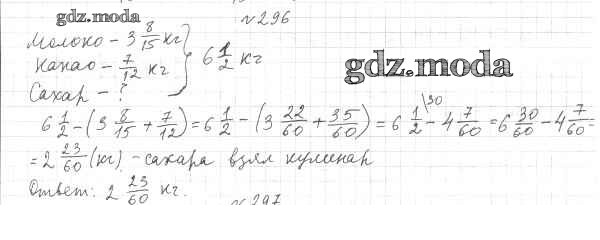 №296
gdz.moda
Молоко - 3 8/15 кг
Какао - 7/12 кг } 6 1/2 кг
Сахар - ?
gdz.moda
6 1/2 - (3 8/15 + 7/12) = 6 1/2 - (3 22/60 + 35/60) = 6 1/2 \30 - 4 7/60 = 6 30/60 - 4 7/60 =
= 2 23/60 (кг) - сахара взял кулинар
Ответ: 2 23/60 кг.
№297